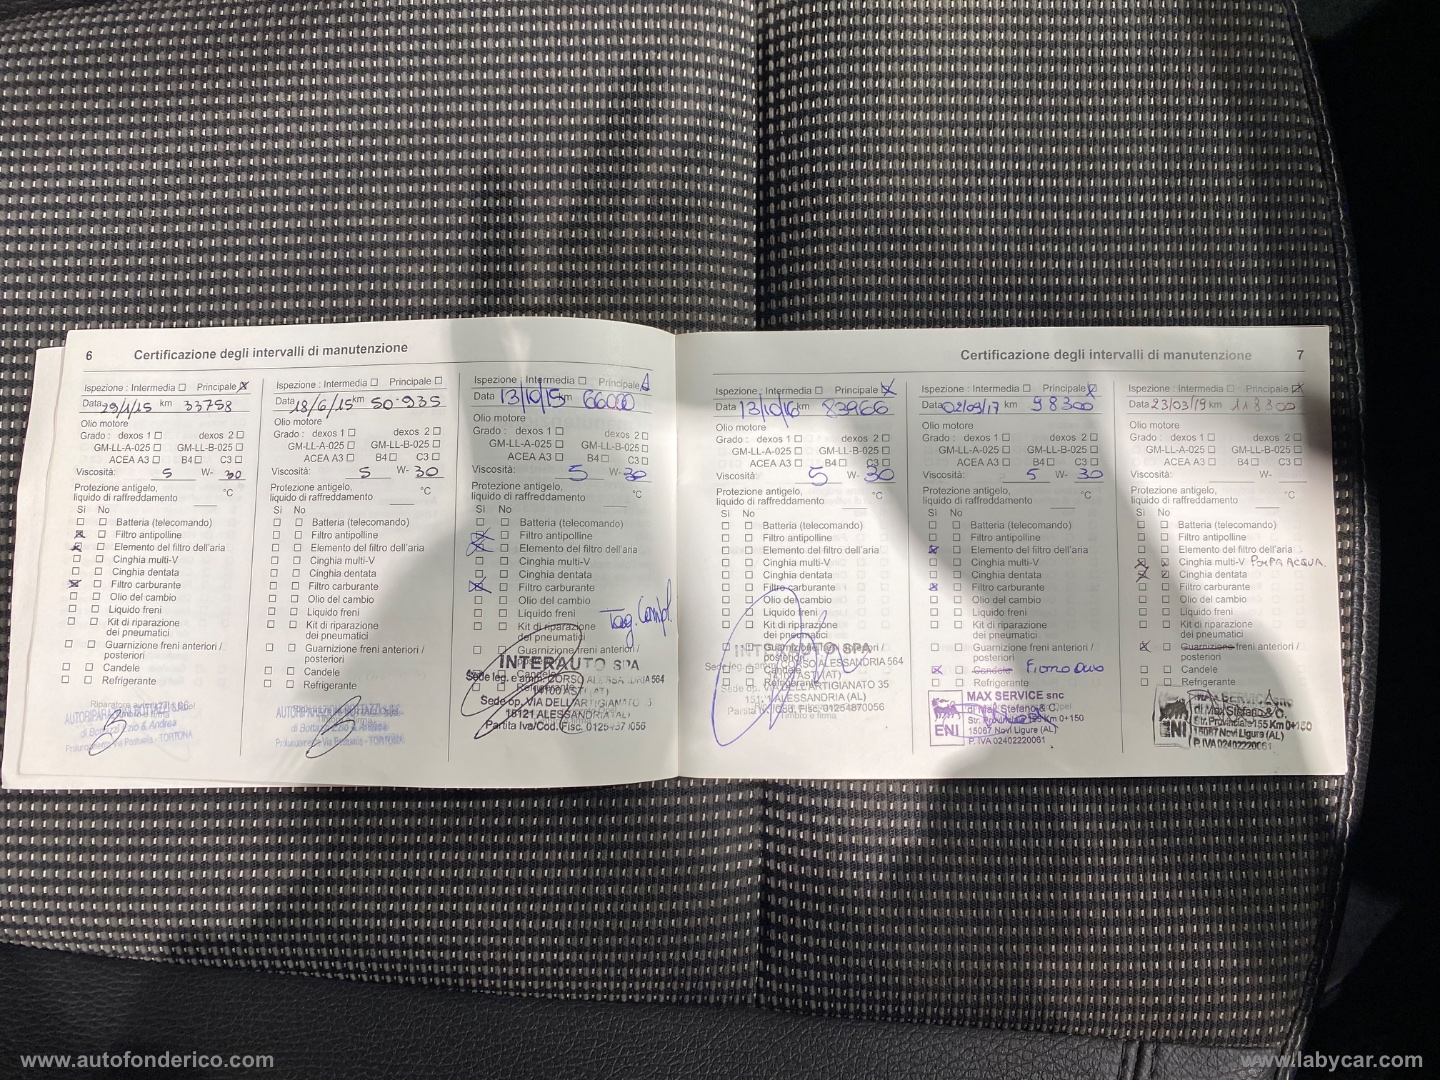 6 Certificazione degli intervalli di manutenzione
Ispezione : Intermedia ☐ Principale ☒
Data 29/1/15 km 33758
Olio motore
Grado : dexos 1 ☐ dexos 2 ☐
GM-LL-A-025 ☐ GM-LL-B-025 ☐
ACEA A3 ☐ B4 ☐ C3 ☐
Viscosità: 5 W- 30
Protezione antigelo,
liquido di raffreddamento °C
Sì No
☐ ☐ Batteria (telecomando)
☒ ☐ Filtro antipolline
☒ ☐ Elemento del filtro dell'aria
☐ ☐ Cinghia multi-V
☐ ☐ Cinghia dentata
☒ ☐ Filtro carburante
☐ ☐ Olio del cambio
☐ ☐ Liquido freni
☐ ☐ Kit di riparazione
dei pneumatici
☐ ☐ Guarnizione freni anteriori /
posteriori
☐ ☐ Candele
☐ ☐ Refrigerante
TORTONA
Ispezione : Intermedia ☐ Principale ☐
Data 18/6/15 km 50.935
Olio motore
Grado : dexos 1 ☐ dexos 2 ☐
GM-LL-A-025 ☐ GM-LL-B-025 ☐
ACEA A3 ☐ B4 ☐ C3 ☐
Viscosità: 5 W- 30
Protezione antigelo,
liquido di raffreddamento °C
Sì No
☐ ☐ Batteria (telecomando)
☐ ☐ Filtro antipolline
☐ ☐ Elemento del filtro dell'aria
☐ ☐ Cinghia multi-V
☐ ☐ Cinghia dentata
☐ ☐ Filtro carburante
☐ ☐ Olio del cambio
☐ ☐ Liquido freni
☐ ☐ Kit di riparazione
dei pneumatici
☐ ☐ Guarnizione freni anteriori /
posteriori
☐ ☐ Candele
☐ ☐ Refrigerante
TORTONA
Ispezione : Intermedia ☐ Principale
Data 13/10/15 km 66000
Olio motore
Grado : dexos 1 ☐ dexos 2 ☐
GM-LL-A-025 ☐ GM-LL-B-025 ☐
ACEA A3 ☐ B4 ☐ C3 ☐
Viscosità: 5 W- 30
Protezione antigelo,
liquido di raffreddamento °C
Sì No
☐ ☐ Batteria (telecomando)
☒ ☐ Filtro antipolline
☒ ☐ Elemento del filtro dell'aria
☐ ☐ Cinghia multi-V
☐ ☐ Cinghia dentata
☒ ☐ Filtro carburante
☐ ☐ Olio del cambio
☐ ☐ Liquido freni
☐ ☐ Kit di riparazione
dei pneumatici
Guarnizione freni anteriori /
INTERAUTO SPA
Sede leg. e amm. CORSO ALESSANDRIA 564
14100 ASTI (AT)
Sede op. VIA DELL'ARTIGIANATO
15121 ALESSANDRIA (AL)
Partita Iva/Cod. Fisc.
Certificazione degli intervalli di manutenzione 7
Ispezione : Intermedia ☐ Principale ☒
Data 13/10/16 km 83966
Olio motore
Grado : dexos 1 ☐ dexos 2 ☐
GM-LL-A-025 ☐ GM-LL-B-025 ☐
ACEA A3 ☐ B4 ☐ C3 ☐
Viscosità: 5 W- 30
Protezione antigelo,
liquido di raffreddamento °C
Sì No
☐ ☐ Batteria (telecomando)
☐ ☐ Filtro antipolline
☐ ☐ Elemento del filtro dell'aria
☐ ☐ Cinghia multi-V
☐ ☐ Cinghia dentata
☐ ☐ Filtro carburante
☐ ☐ Olio del cambio
☐ ☐ Liquido freni
☐ ☐ Kit di riparazione
dei pneumatici
INTERAUTO SPA
CORSO ALESSANDRIA 564
VIA DELL'ARTIGIANATO 35
ALESSANDRIA (AL)
Cod. Fisc. 01254870056
Ispezione : Intermedia ☐ Principale ☒
Data 02/09/17 km 98300
Olio motore
Grado : dexos 1 ☐ dexos 2 ☐
GM-LL-A-025 ☐ GM-LL-B-025 ☐
ACEA A3 ☐ B4 ☐ C3 ☐
Viscosità: 5 W- 30
Protezione antigelo,
liquido di raffreddamento °C
Sì No
☐ ☐ Batteria (telecomando)
☐ ☐ Filtro antipolline
☒ ☐ Elemento del filtro dell'aria
☐ ☐ Cinghia multi-V
☐ ☐ Cinghia dentata
☒ ☐ Filtro carburante
☐ ☐ Olio del cambio
☐ ☐ Liquido freni
☐ ☐ Kit di riparazione
dei pneumatici
☐ ☐ Guarnizione freni anteriori /
posteriori
☒ ☐ Candele
☐ ☐ Refrigerante
MAX SERVICE snc
di Max Stefano & C.
Str. Provinciale 155 Km 0+150
15067 Novi Ligure (AL)
P. IVA 02402220061
ENI
Ispezione : Intermedia ☐ Principale ☒
Data 23/03/19 km 118300
Olio motore
Grado : dexos 1 ☐ dexos 2 ☐
GM-LL-A-025 ☐ GM-LL-B-025 ☐
ACEA A3 ☐ B4 ☐ C3 ☐
Viscosità: W-
Protezione antigelo,
liquido di raffreddamento °C
Sì No
☐ ☐ Batteria (telecomando)
☐ ☐ Filtro antipolline
☐ ☐ Elemento del filtro dell'aria
☒ ☐ Cinghia multi-V POMPA ACQUA.
☒ ☐ Cinghia dentata
☐ ☐ Filtro carburante
☐ ☐ Olio del cambio
☐ ☐ Liquido freni
☐ ☐ Kit di riparazione
dei pneumatici
☒ ☐ Guarnizione freni anteriori /
posteriori
☐ ☐ Candele
☐ ☐ Refrigerante
di Max Stefano & C.
Str. Provinciale 155 Km 0+150
15067 Novi Ligure (AL)
P. IVA 02402220061
ENI
www.autofonderico.com
www.labycar.com